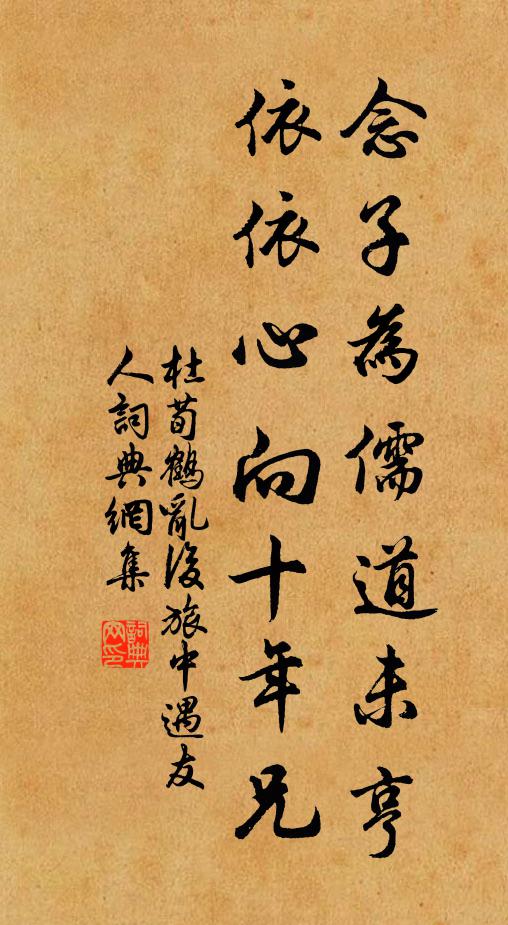 念子為儒道未亨
依依心向十年兄
杜荀鶴亂後旅中遇友
人詞典網集
詞典
网印